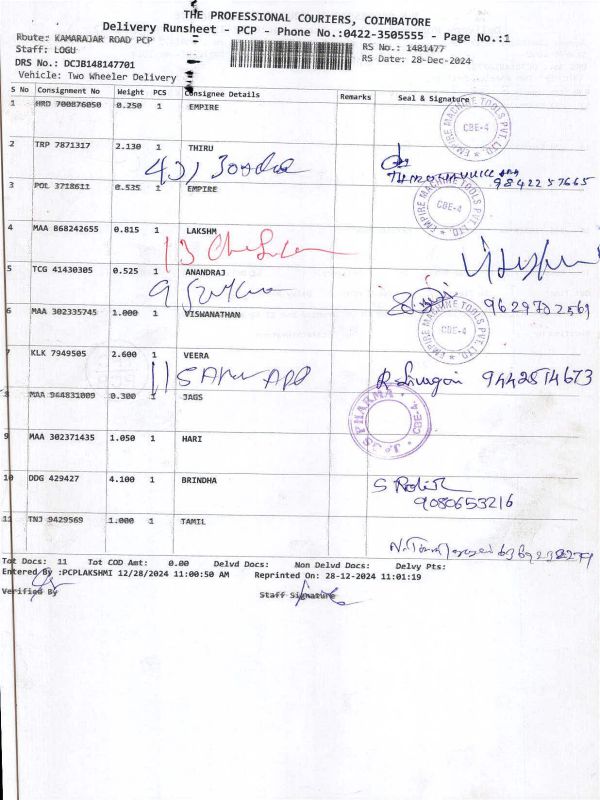 THE PROFESSIONAL COURIERS, COIMBATORE
Delivery Runsheet - PCP - Phone No.:0422-3505555 - Page No.:1
Route: KAMARAJAR ROAD PCP RS No.: 1481477
Staff: LOGU RS Date: 28-Dec-2024
DRS No.: DCJB148147701
Vehicle: Two Wheeler Delivery
S No Consignment No Weight PCS Consignee Details Remarks Seal & Signature
1 HRD 700876050 0.250 1 EMPIRE
EMPIRE MACHINE TOOLS PVT. LTD CBE-4
2 TRP 7871317 2.130 1 THIRU
9842257665
3 POL 3718611 0.535 1 EMPIRE
EMPIRE MACHINE TOOLS PVT. LTD CBE-4
4 MAA 868242655 0.815 1 LAKSHM
13
5 TCG 41430305 0.525 1 ANANDRAJ
9
6 MAA 302335745 1.000 1 VISWANATHAN
9629702569
EMPIRE MACHINE TOOLS PVT. LTD CBE-4
7 KLK 7949505 2.600 1 VEERA
11 9442514673
8 MAA 964831009 0.300 1 JAGS
PHARMA CBE-4
9 MAA 302371435 1.050 1 HARI
10 DDG 429427 4.100 1 BRINDHA
9080653216
11 TNJ 9429569 1.000 1 TAMIL
Tot Docs: 11 Tot COD Amt: 0.00 Delvd Docs: Non Delvd Docs: Delvy Pts:
Entered By :PCPLAKSHMI 12/28/2024 11:00:50 AM Reprinted On: 28-12-2024 11:01:19
Verified By Staff Signature